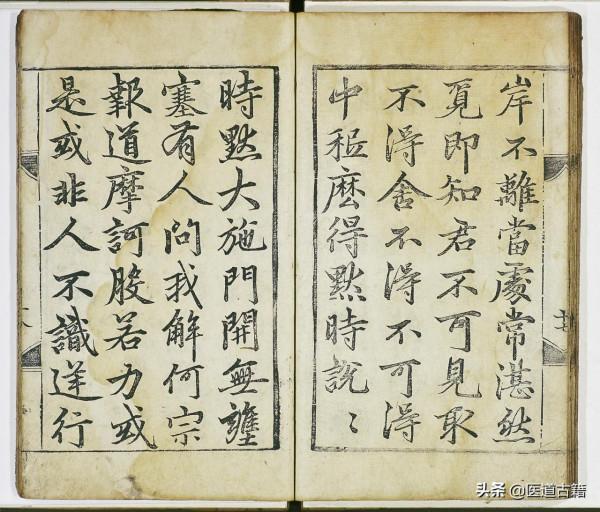 岸不離當處常湛然
覓即知君不可見取
不得舍不得不可得
中秪麼得默時說〻
時默大施門開無壅
塞有人問我解何宗
報道摩訶般若力或
是或非人不識逆行
头条 @医道古籍